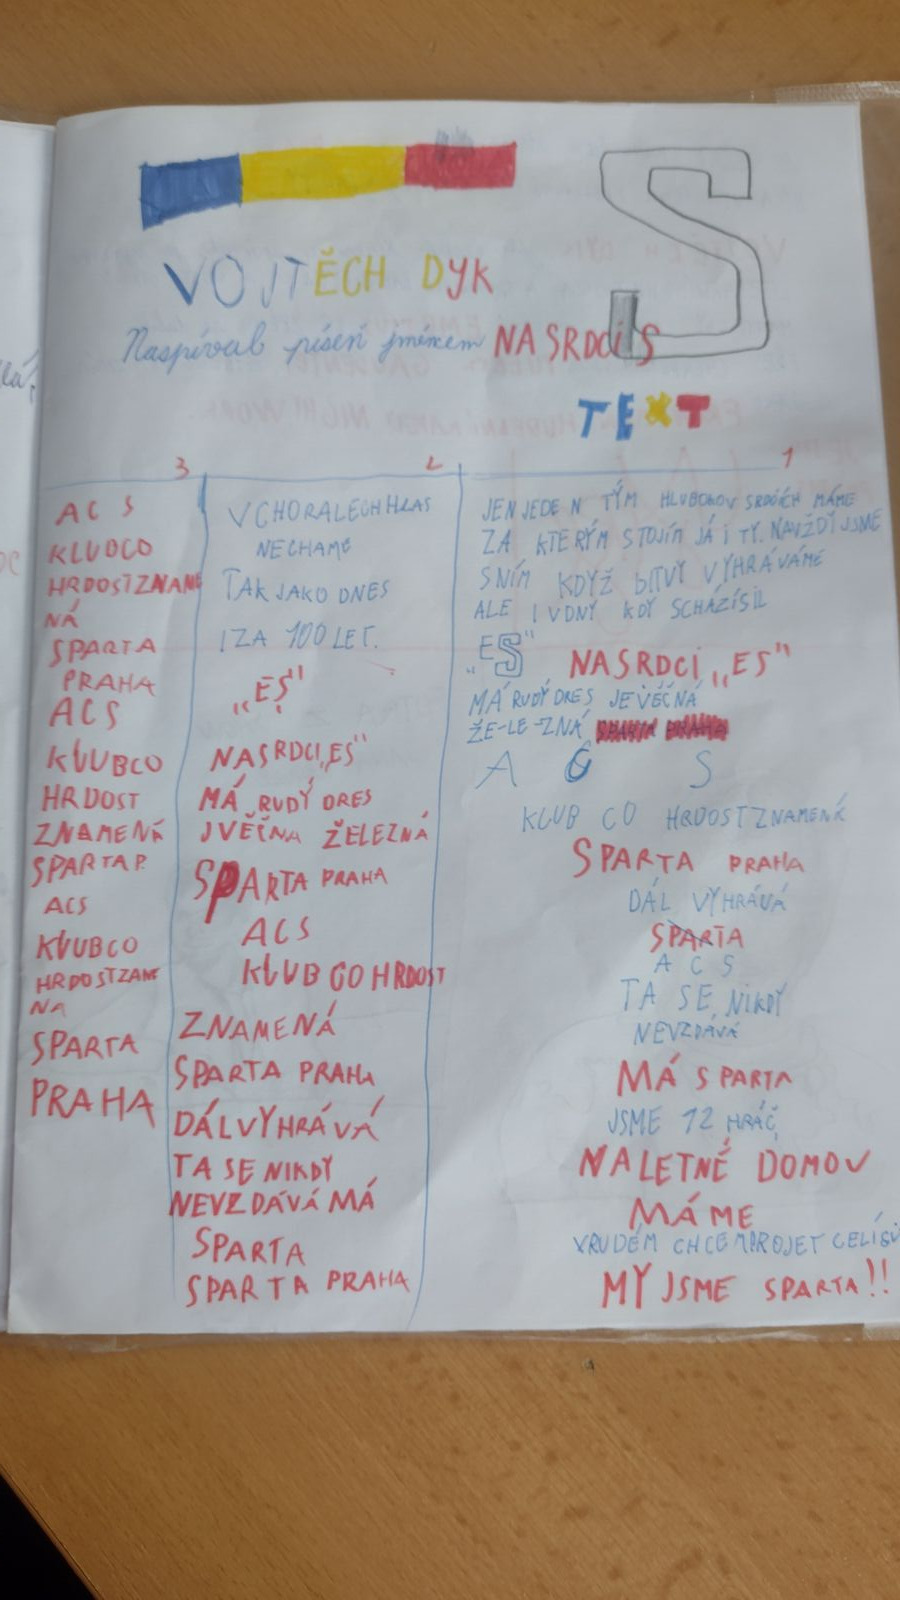 S
VOJTĚCH DYK
Naspíval píseň jménem NA SRDCI S
TEXT
1
JEN JEDEN TÝM HLUBOKOV SRDCÍCH MÁME
ZA KTERÝM STOJÍM JÁ I TY. NAVŽDY JSME
SNÍM KDYŽ BITVY VYHRÁVÁME
ALE I VDNY KDY SCHÁZÍSIL
"ES" NASRDCÍ „ES"
MÁ RUDÝ DRES JE VĚČNÁ
ŽE-LE-ZNÁ SPARTA PRAHA
A C S
KLUB CO HRDOSTZNAMENÁ
SPARTA PRAHA
DÁL VYHRÁVÁ
SPARTA
A C S
TA SE NIKDY
NEVZDÁVÁ
MÁ SPARTA
JSME 12 HRÁČ
NA LETNÉ DOMOV
MÁME
VRUDÉM CHCEM PROJET CELÍ
MY JSME SPARTA!!
2
VCHORALECH HLAS
NECHAME
TAK JAKO DNES
I ZA 100 LET.
„ES"
NASRDCI„ES"
MÁ RUDÝ DRES
JVĚČNA ŽELEZNÁ
SPARTA PRAHA
ACS
KLUB CO HRDOST
ZNAMENÁ
SPARTA PRAHA
DÁLVYHRÁVÁ
TA SE NIKDY
NEVZDÁVÁ MÁ
SPARTA
SPARTA PRAHA
3
ACS
KLUBCO
HRDOSTZNAME
NÁ
SPARTA
PRAHA
ACS
KLUBCO
HRDOST
ZNAMENÁ
SPARTA P.
ACS
KLUBCO
HRDOSTZAME
NA
SPARTA
PRAHA